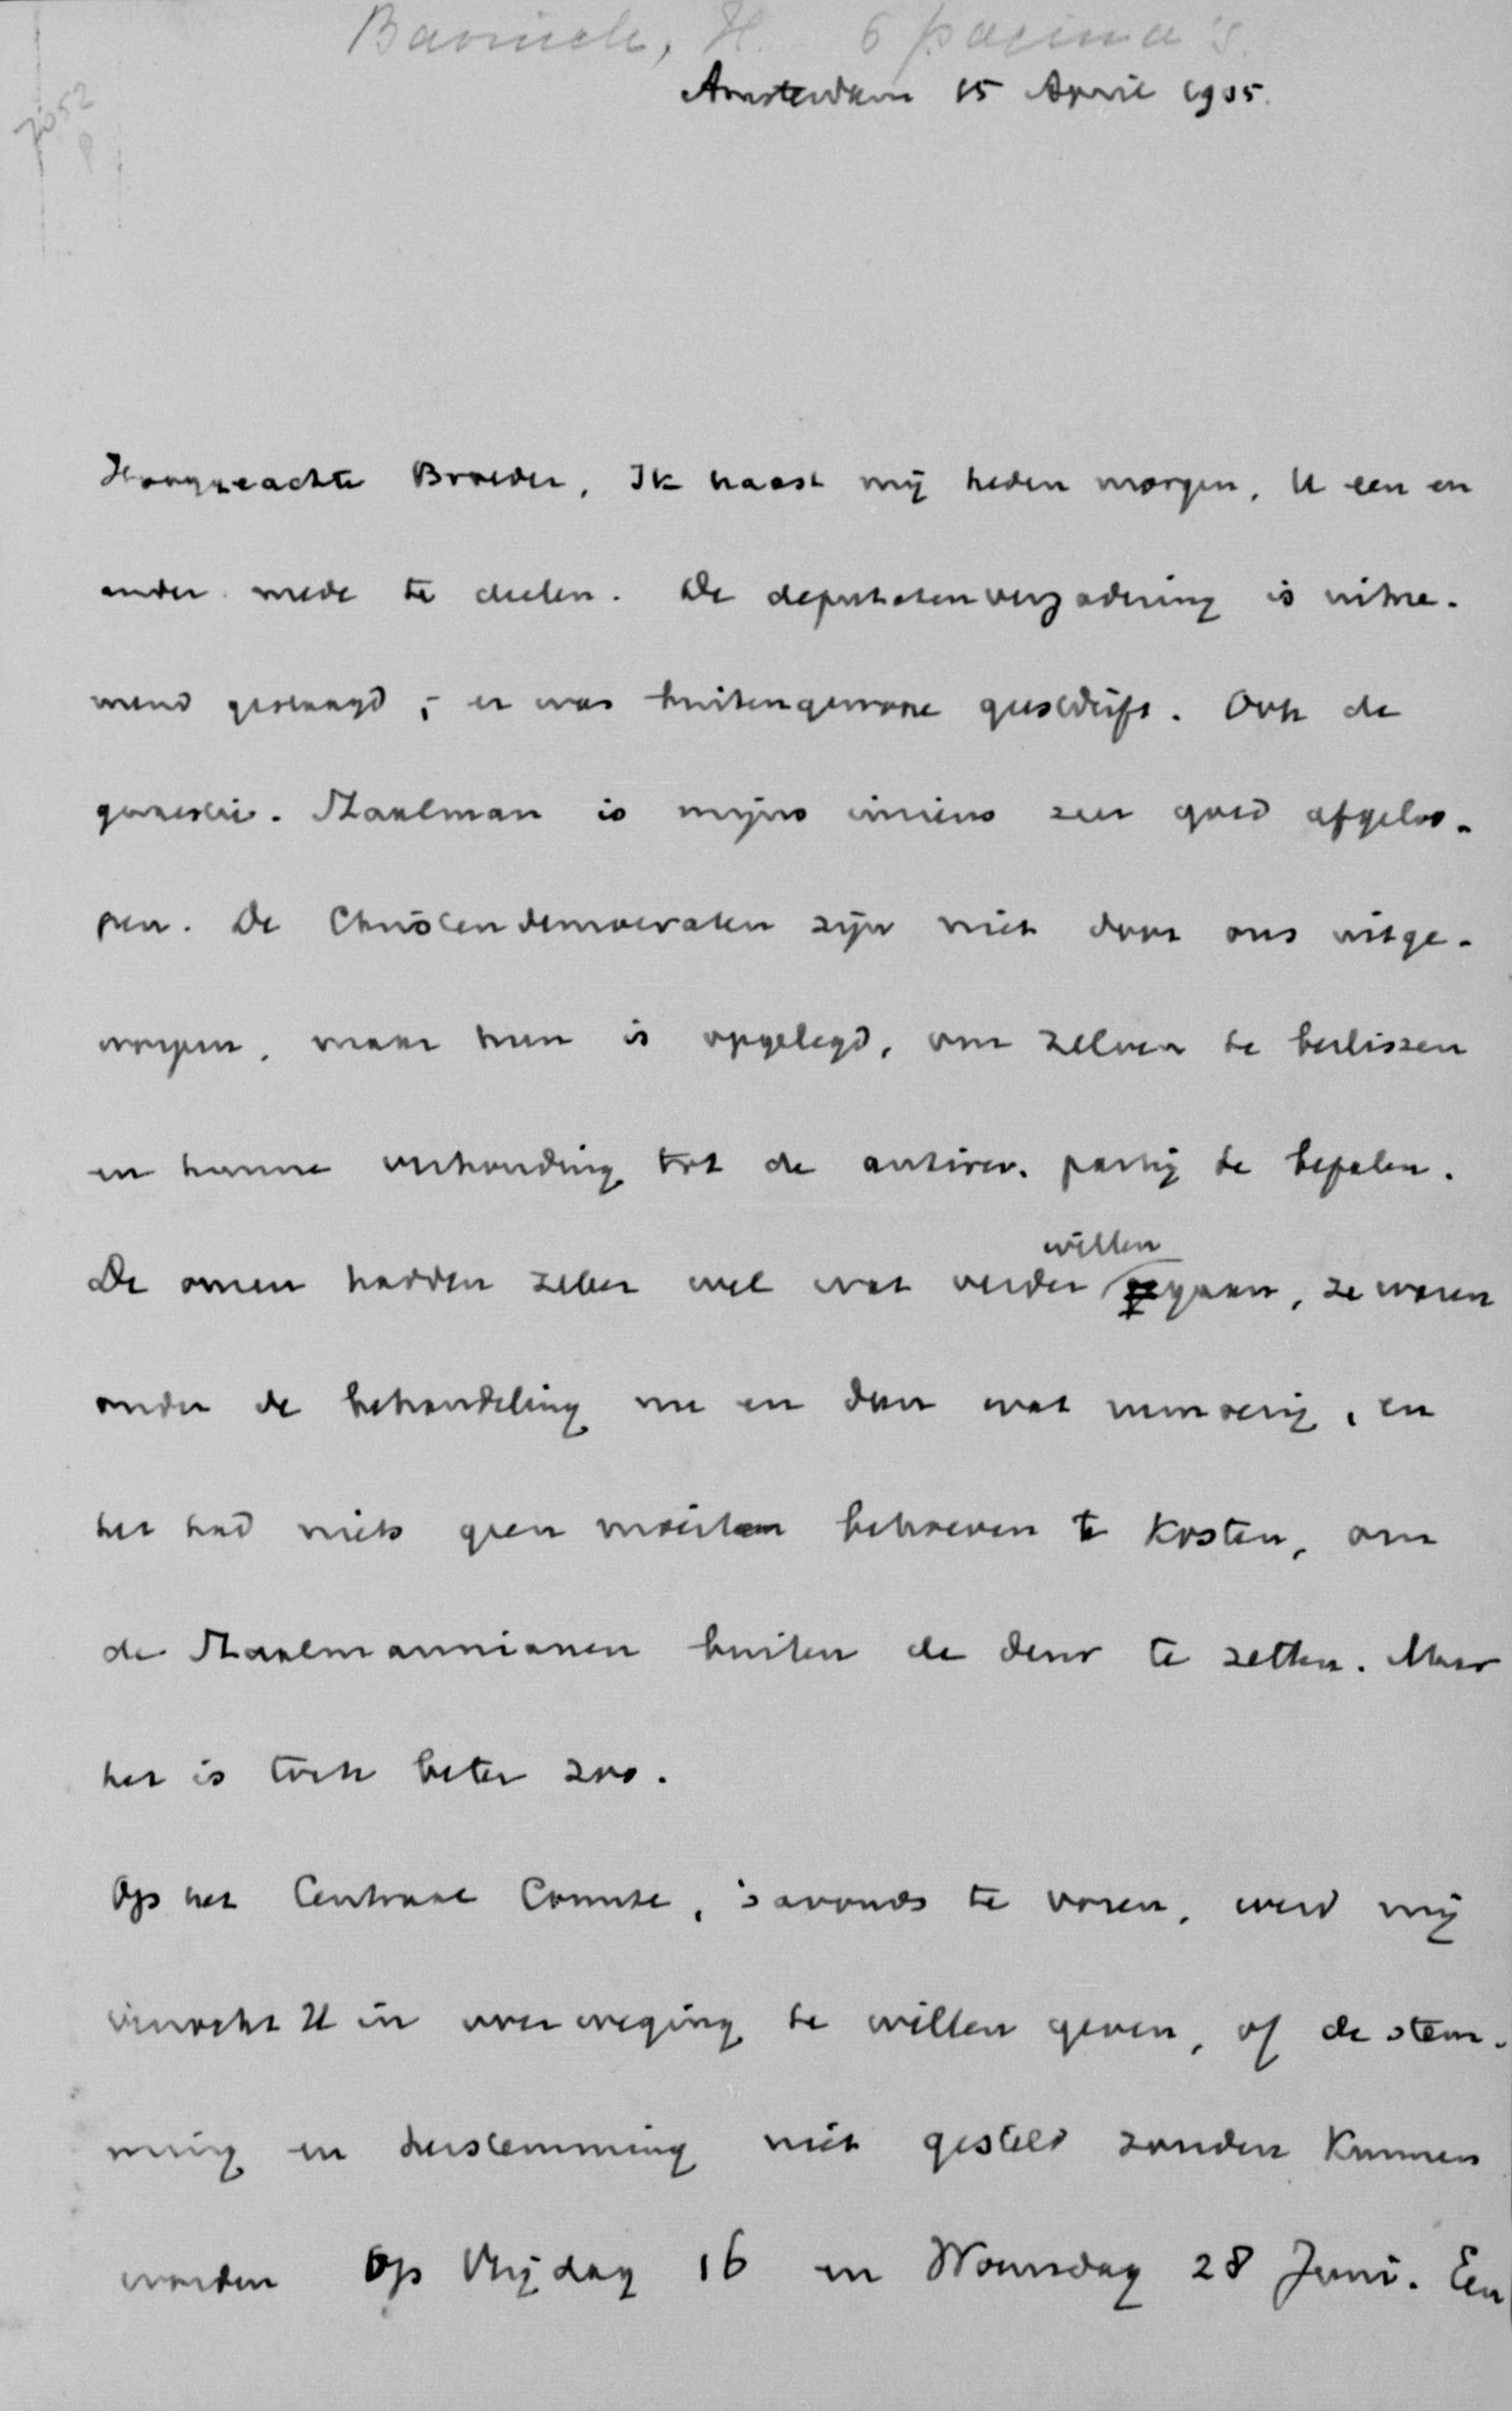 Bavinck, H. 6 pagina's
7052
Amsterdam 15 April 1905.
Hooggeachte Broeder, Ik haast mij heden morgen, U een en
ander mede te deelen. De deputatenvergadering is uitne-
mend geslaagd; er was buitengewone geestdrift. Ook de
quaestie-Staalman is mijns inziens zeer goed afgeloo-
pen. De Christendemocraten zijn niet door ons uitge-
worpen, maar hun is opgelegd, om zelven te beslissen
en hunne verhouding tot de antirev. partij te bepalen.
willen
De onzen hadden zelver wel wat verder gaan, ze waren
onder de behandeling nu en dan wat rumoerig, en
het had niets geen moeiten behoeven te kosten, om
de Staalmannianen buiten de deur te zetten. Maar
het is toch beter zoo.
Op het Centraal Comite, 's avonds te voren, werd mij
verzocht U in overweging te willen geven, of de stem-
ming en herstemming niet gesteld zouden kunnen
worden op Vrijdag 16 en Woensdag 28 Juni. Een